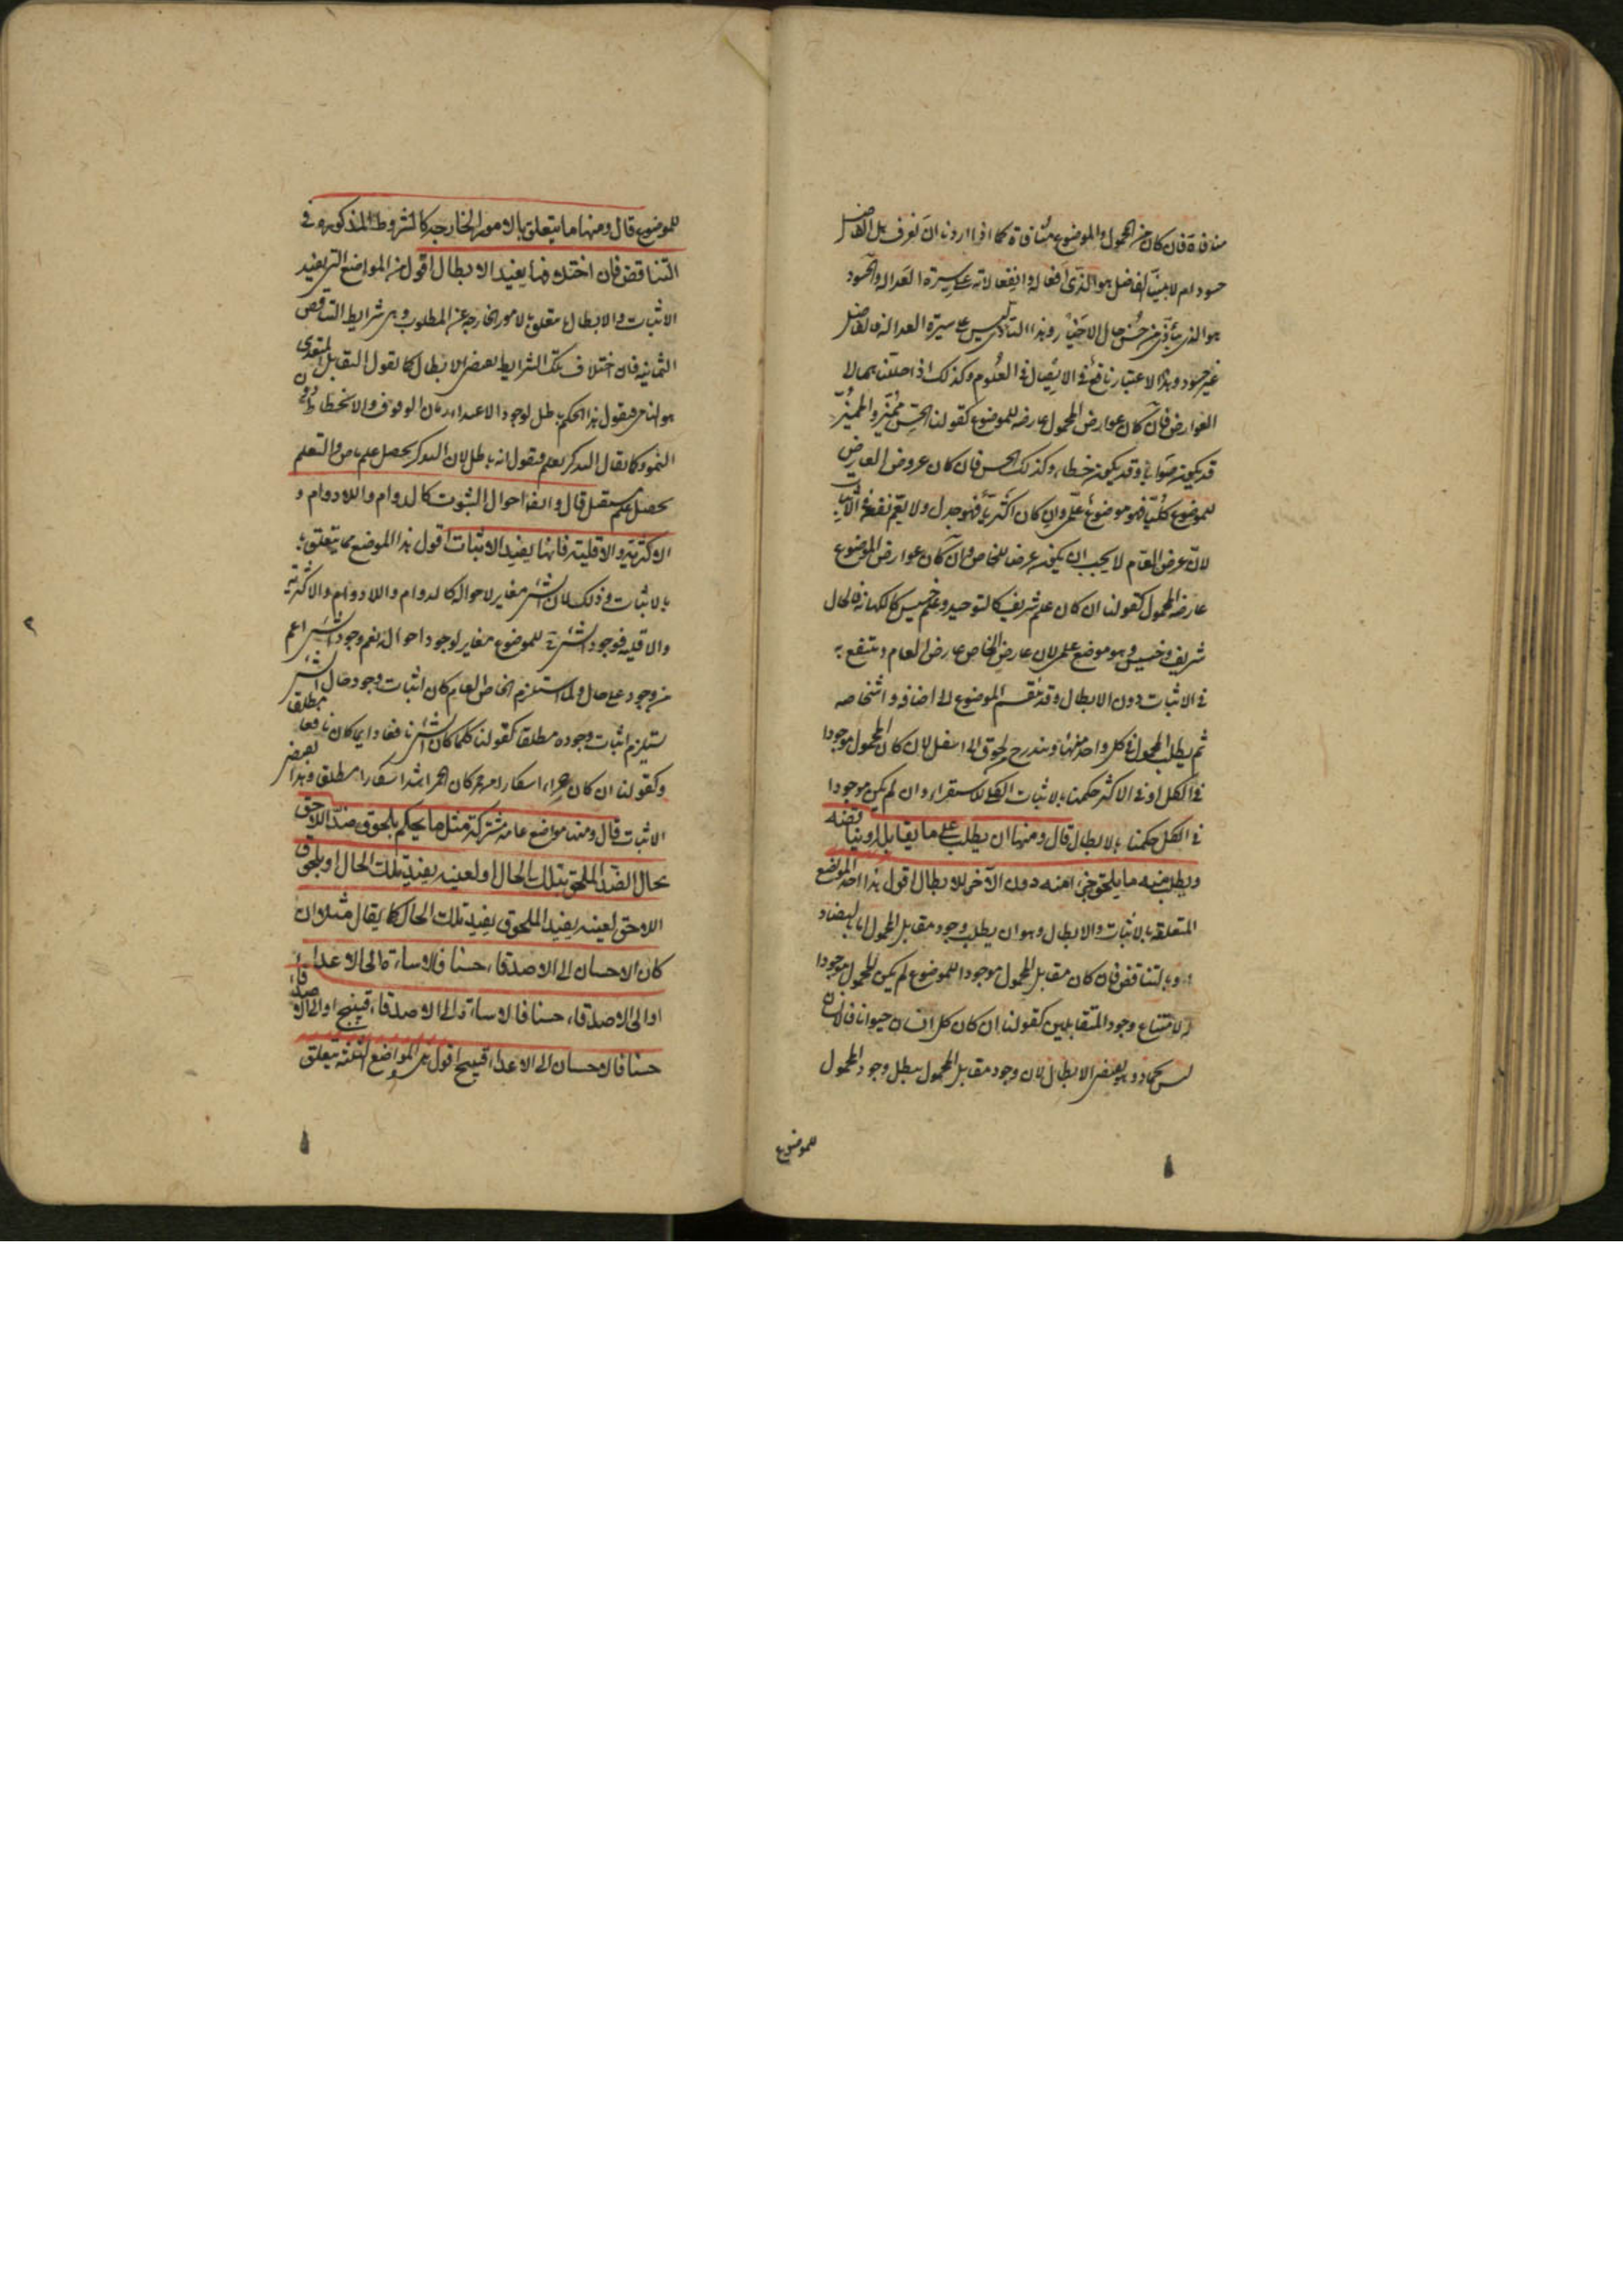 منافرة فان كان بين المحمول والموضوع منافاة كما اذا اردنا ان نعرف هل الفاضل
حسود ام لا بينا الفاضل هو الذي افعاله وانفعالاته على سيرة العدالة والحسود
هو الذي يتأذى من حسن حال الاخيار وهذا التأذي ليس على سيرة العدالة فالفاضل
غير حسود وهذا الاعتبار نافع في الايصال في العلوم وكذلك اذا حللنا بهما لا
العوارض فان كان عوارض المحمول عارضه للموضوع كقولنا الحس مميز والمميز
قد يكون صوابا وقد يكون خطاء وكذلك الحس فان كان عروض العارض
للموضوع كليا فهو موضوع علمي وان كان اكثريا فهو جدلي ولا يعم نفعه في الاثبات
لان عرض العام لا يجب ان يكون عرضا للخاص وان كان عوارض الموضوع
عارضه المحمول كقولنا ان كان علم شريف كالتوحيد وعلم خسيس كالكهانة فالحال
شريف وخسيس وهو موضع علمي لان عارض الخاص عارض العام وينتفع به
في الاثبات دون الابطال وقد نقسم الموضوع الى اضافه واشخاصه
ثم يطلب المحمول في كل واحد منها ويندرج من فوق الى اسفل لان كان المحمول موجودا
في الكل او في الاكثر حكمنا بالاثبات الكلي للاستقراء وان لم يكن موجودا
في الكل حكمنا بالابطال قال ومنها ان يطلب على ما يقابل او يناقضه
ويطلب منه ما يلحق دون الآخر للابطال اقول هذا احد المواضع
المتعلقه بالاثبات والابطال وهو ان يطلب وجود مقابل المحمول اما بالتضاد
او بالتناقض فان كان مقابل المحمول موجودا للموضوع لم يكن المحمول موجودا
له لامتناع وجود المتقابلين كقولنا ان كان كل انسان حيوانا فالانسان
ليس بجماد وهو بعض الابطال لان وجود مقابل المحمول يبطل وجود المحمول
للموضوع
للموضوع قال ومنها ما يتعلق بالامور الخارجيه كالشروط المذكوره في
التناقض فان اختلافها يفيد الابطال اقول من المواضع التي يفيد
الاثبات والابطال ما يتعلق بالامور الخارجه عن المطلوب وهي شرايط التناقض
الثمانيه فان اختلاف تلك الشرايط يقتضي الابطال كما نقول التقابل المتعدي
هو النامي فيقول هذا الحكم باطل لوجود الاغتذاء زمان الوقوف والانحطاط دون
النمو وكما يقال التذكر تعلم فنقول انه باطل لان التذكر يحصل علم ماض والتعلم
يحصل علم مستقبل قال وايضا احوال الثبوت كالدوام واللادوام و
الاكثرية والاقلية فانها يفيد الاثبات اقول هذا الموضع مما يتعلق
بالاثبات وذلك لان الشيء مغاير لاحواله كالدوام واللادوام والاكثريه
والاقليه فوجود الشيء للموضوع مغاير لوجود احواله نعم وجود الشيء اعم
من وجوده على حال ولما استلزم الخاص العام كان اثبات وجود حال الشيء
يستلزم اثبات وجوده مطلقا كقولنا كلما كان الشيء نافعا دايما كان نافعا مطلقا
وكقولنا ان كان الخمر اشد اسكارا مطلق وهذا يقتضي
الاثبات قال ومنها مواضع عامه مشتركة مثل ما يحكم بلحوق ضد اللاحق
بحال الضد الملحق بتلك الحال او لعينه بغير تلك الحال او بلحوق
اللاحق لعينه بضد الملحوق بغير تلك الحال كما يقال مثلا ان
كان الاحسان الى الاصدقاء حسنا فالاساءة الى الاعداء
او الى الاصدقاء حسنا فالاساءة الى الاصدقاء قبيح او الى الاصدقاء
حسنا فالاحسان الى الاعداء قبيح اقول هذه المواضع الثلثة يتعلق